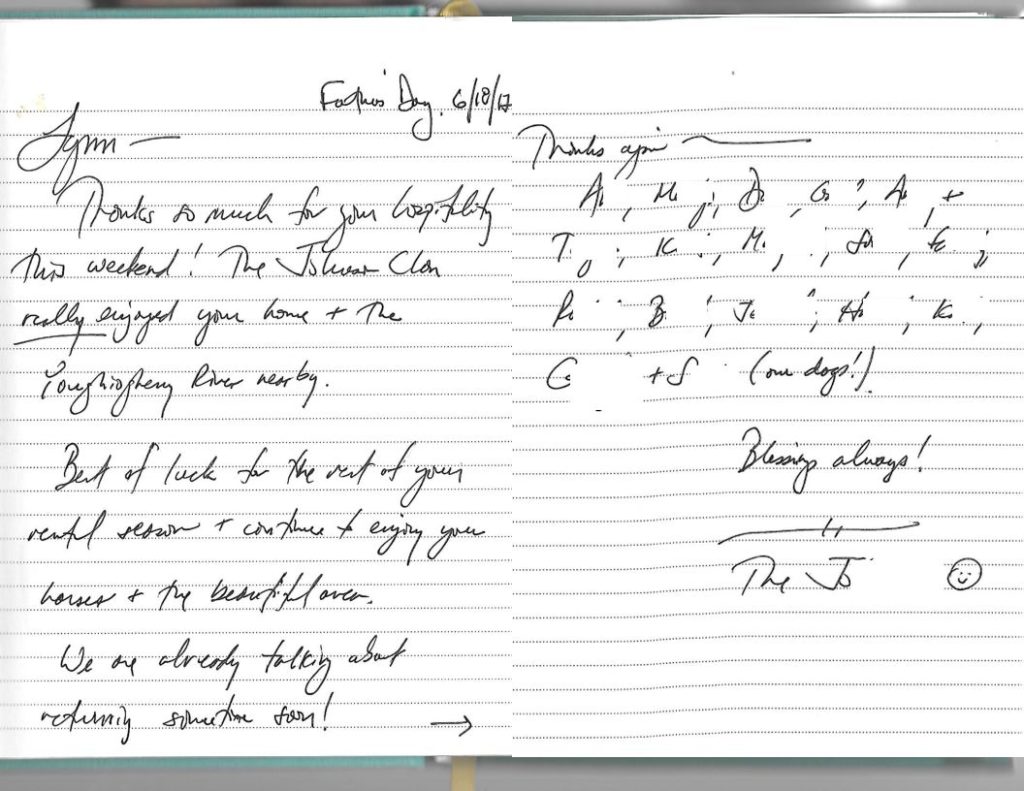 Father's Day. 6/18/17
Lynn —
Thanks so much for your hospitality
this weekend! The Johnson Clan
really enjoyed your home + the
Youghiogheny River nearby.
Best of luck for the rest of your
rental season + continue to enjoy your
horses + the beautiful area.
We are already talking about
returning sometime soon!
→
Thanks again —
+
+ S (our dogs!)
Blessings always!
The Jo